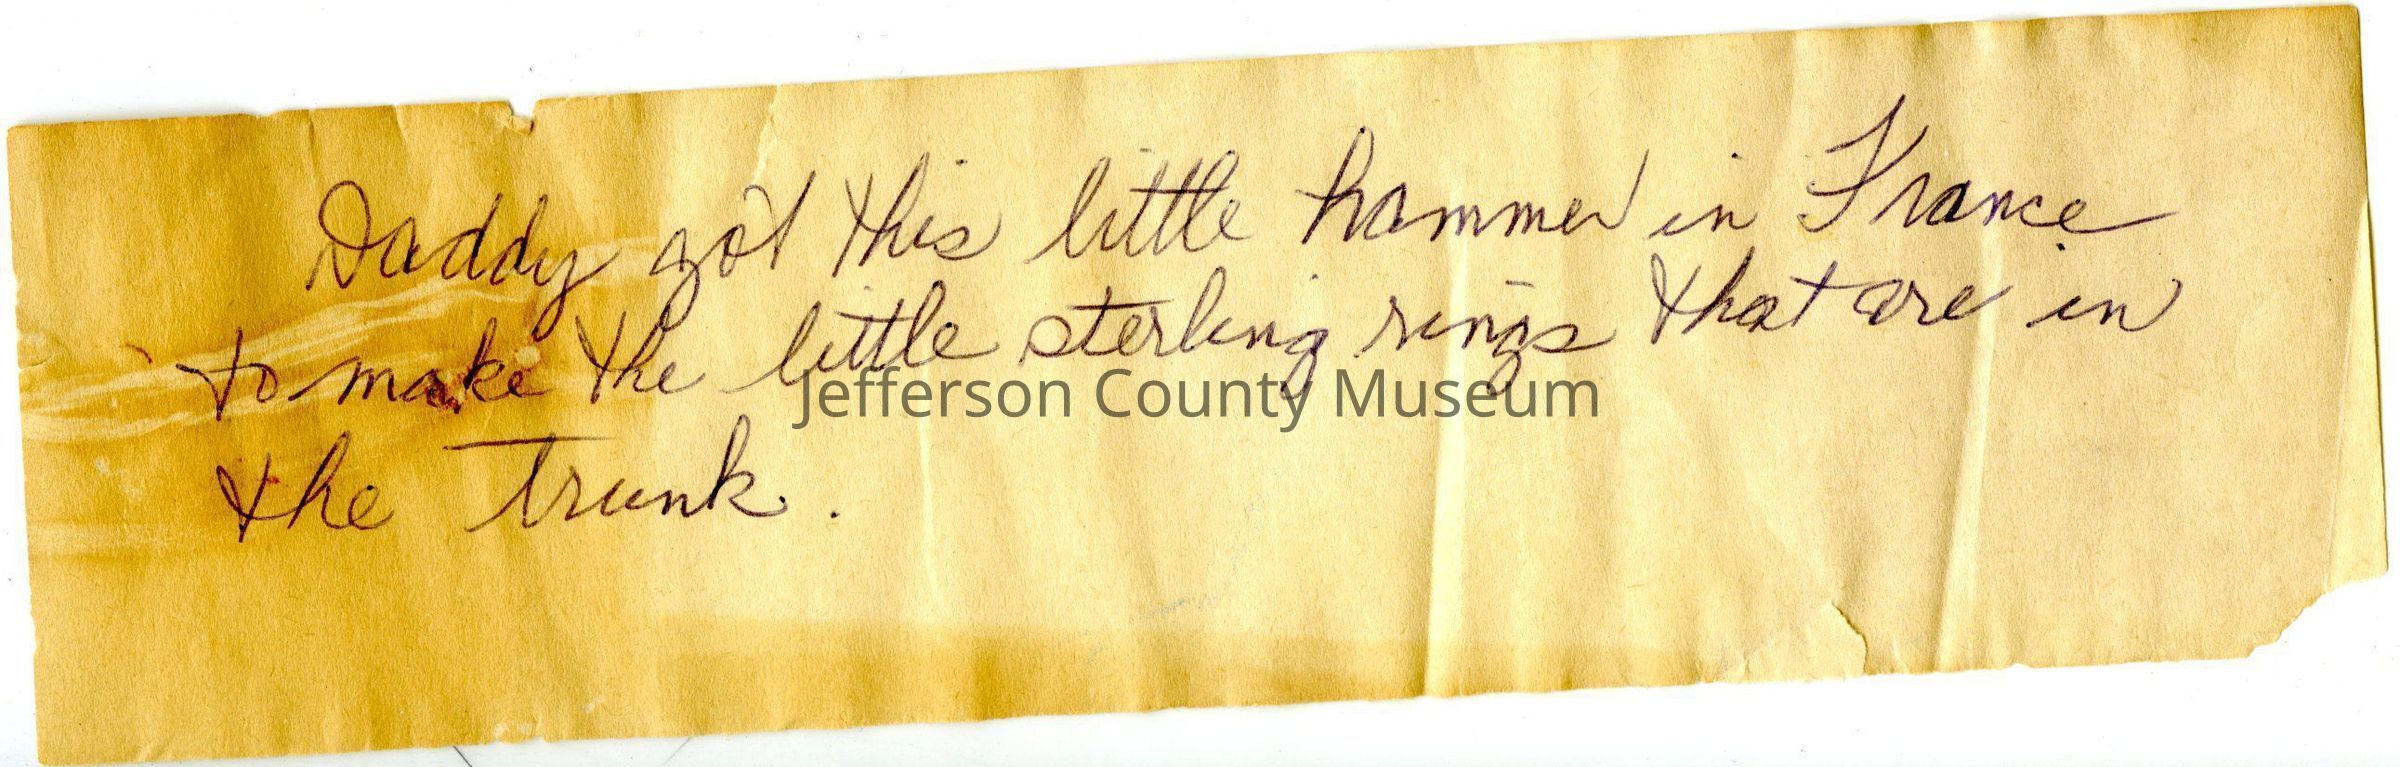 Daddy got this little hammer in France
to make the little sterling rings that are in
Jefferson County Museum
the trunk.